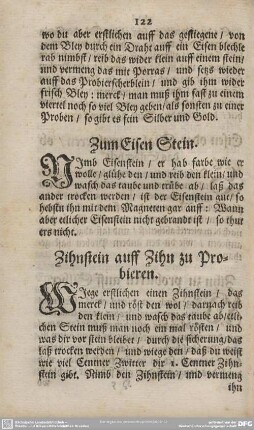 122
wo du aber erstlichen auff das gestiegene / von
dem Bley durch ein Draht auff ein Eisen blechle
rab nimbst / reib das wider klein auff einem stein /
und vermeng das mit Porras / und setz wieder
auff das Probierscherblein / und gib ihm wider
frisch Bley: merck / man muß ihm fast zu einem
viertel noch so viel Bley geben / als sonsten zu einer
Proben / so gibt es sein Silber und Gold.
Zum Eisen Stein.
NImb Eisenstein / er hab farbe wie er
wolle / glühe den / und reib den klein / und
wasch das taube und trübe ab / laß das
ander trocken werden / ist der Eisenstein gut / so
hebstu ihn mit dem Magneten gar auff: Wann
aber etlicher Eisenstein nicht gebrandt ist / so thut
ers nicht.
Zihnstein auff Zihn zu Pro-
bieren.
WIege erstlichen einen Zihnstein / das
merck / und röst den wol / darnach reib
den klein / und wasch das taube ab / etli-
chen Stein muß man noch ein mal rösten / und
was dir vor stein bleibet / durch die sicherung / das
laß trocken werden / und wiege den / daß du weist
wie viel Centner Zwitter dir 1. Centner Zihn-
stein gibt. Nimb den Zihnstein / und vermeng
ihn